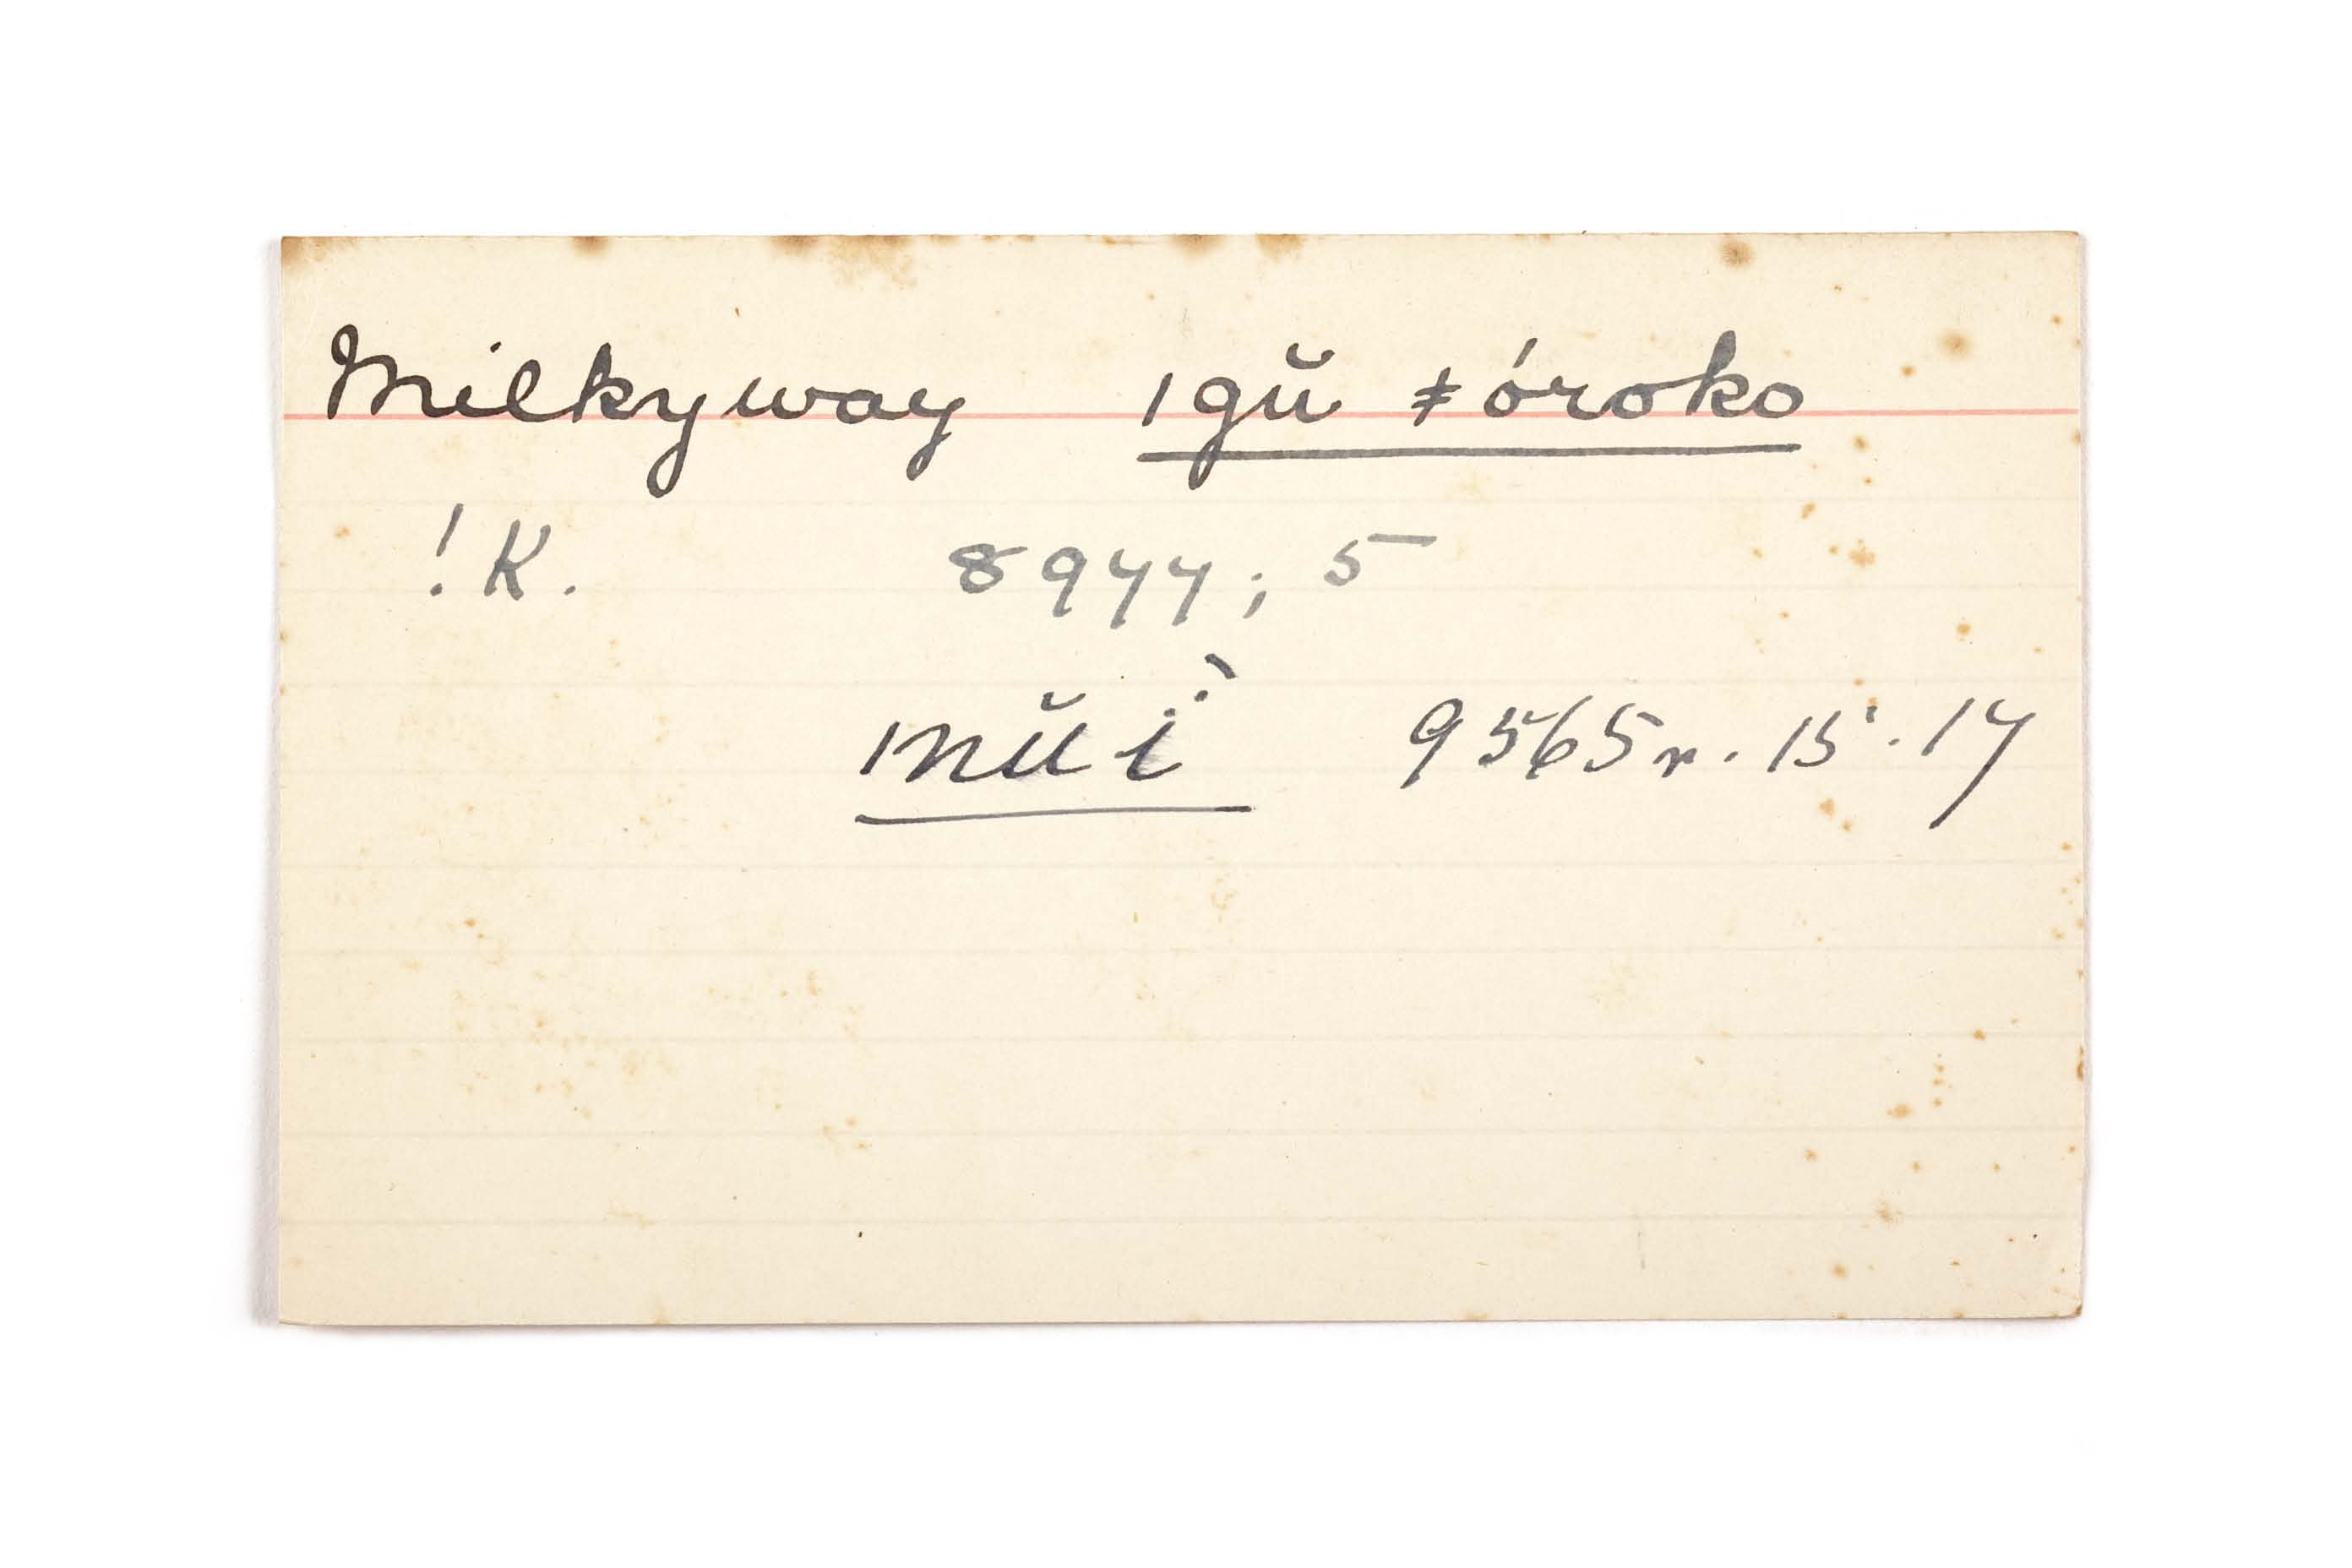 Milkyway ǀgŭ ǂóroko
!K. 8944; 5
ǀnŭĭ 9565r. 15. 17